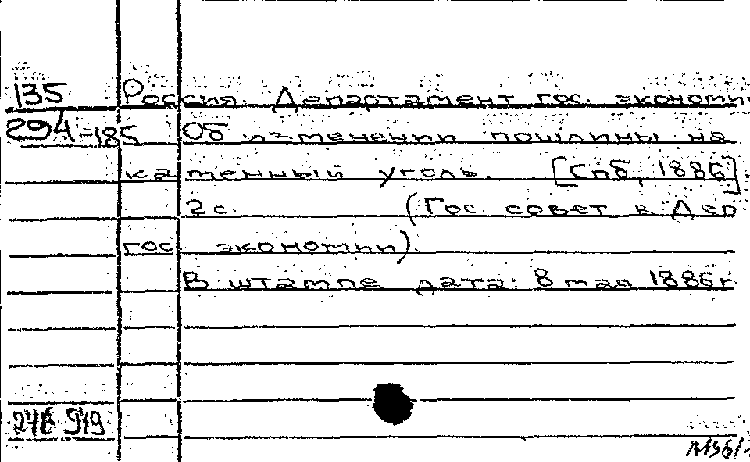 135 Россия. Департамент гос. экономи
294-185 Об изменении пошлины на
каменный уголь. [Спб, 1886].
2с. (Гос. совет в Деп
гос экономии).
В штампе дата: 8 мая 1886г.
246 949